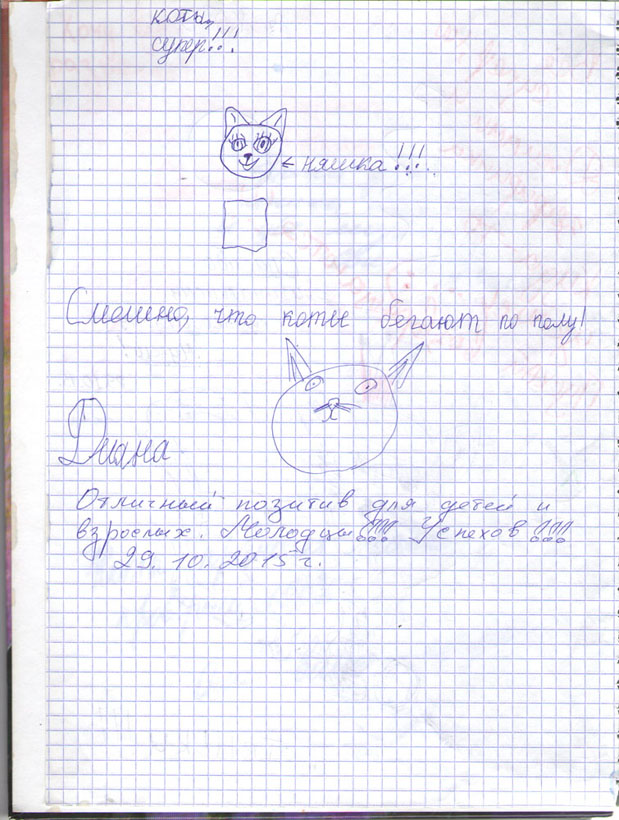 коты
супер!!!
← няшка!!!
Смешно, что коты бегают по полу!
Диана
Отличный позитив для детей и
взрослых. Молодцы!!! Успехов!!!
29. 10. 2015 г.